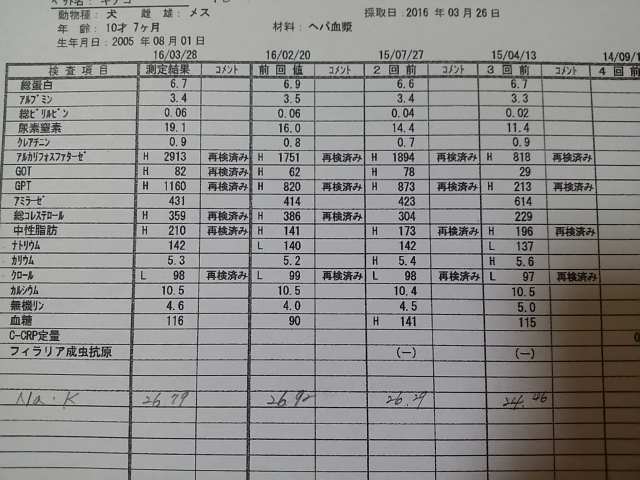 動物種：犬 雌雄：メス
採取日：2016 年 03 月 26 日
年 齢：10才 7ヶ月
材料：ヘパ血漿
生年月日：2005 年 08 月 01 日
16/03/28 16/02/20 15/07/27 15/04/13 14/09/1
検査項目 測定結果 コメント 前回値 コメント 2回前 コメント 3回前 コメント 4回前
総蛋白 6.7 6.9 6.6 6.7
アルブミン 3.4 3.5 3.4 3.3
総ビリルビン 0.06 0.06 0.04 0.02
尿素窒素 19.1 16.0 14.4 11.4
クレアチニン 0.9 0.8 0.7 0.9
アルカリフォスファターゼ H 2913 再検済み H 1751 再検済み H 1894 再検済み H 818 再検済み
GOT H 82 再検済み H 62 H 78 29
GPT H 1160 再検済み H 820 再検済み H 873 再検済み H 213 再検済み
アミラーゼ 431 414 423 614
総コレステロール H 359 再検済み H 386 再検済み 304 229
中性脂肪 H 210 再検済み H 141 H 173 再検済み H 196 再検済み
ナトリウム 142 L 140 142 L 137
カリウム 5.3 5.2 H 5.4 H 5.6
クロール L 98 再検済み L 99 再検済み L 98 再検済み L 97 再検済み
カルシウム 10.5 10.5 10.4 10.5
無機リン 4.6 4.0 4.5 5.0
血糖 116 90 H 141 115
C-CRP定量 0
フィラリア成虫抗原 (—) (—)
Na・K 26.79 26.92 26.29 24.46